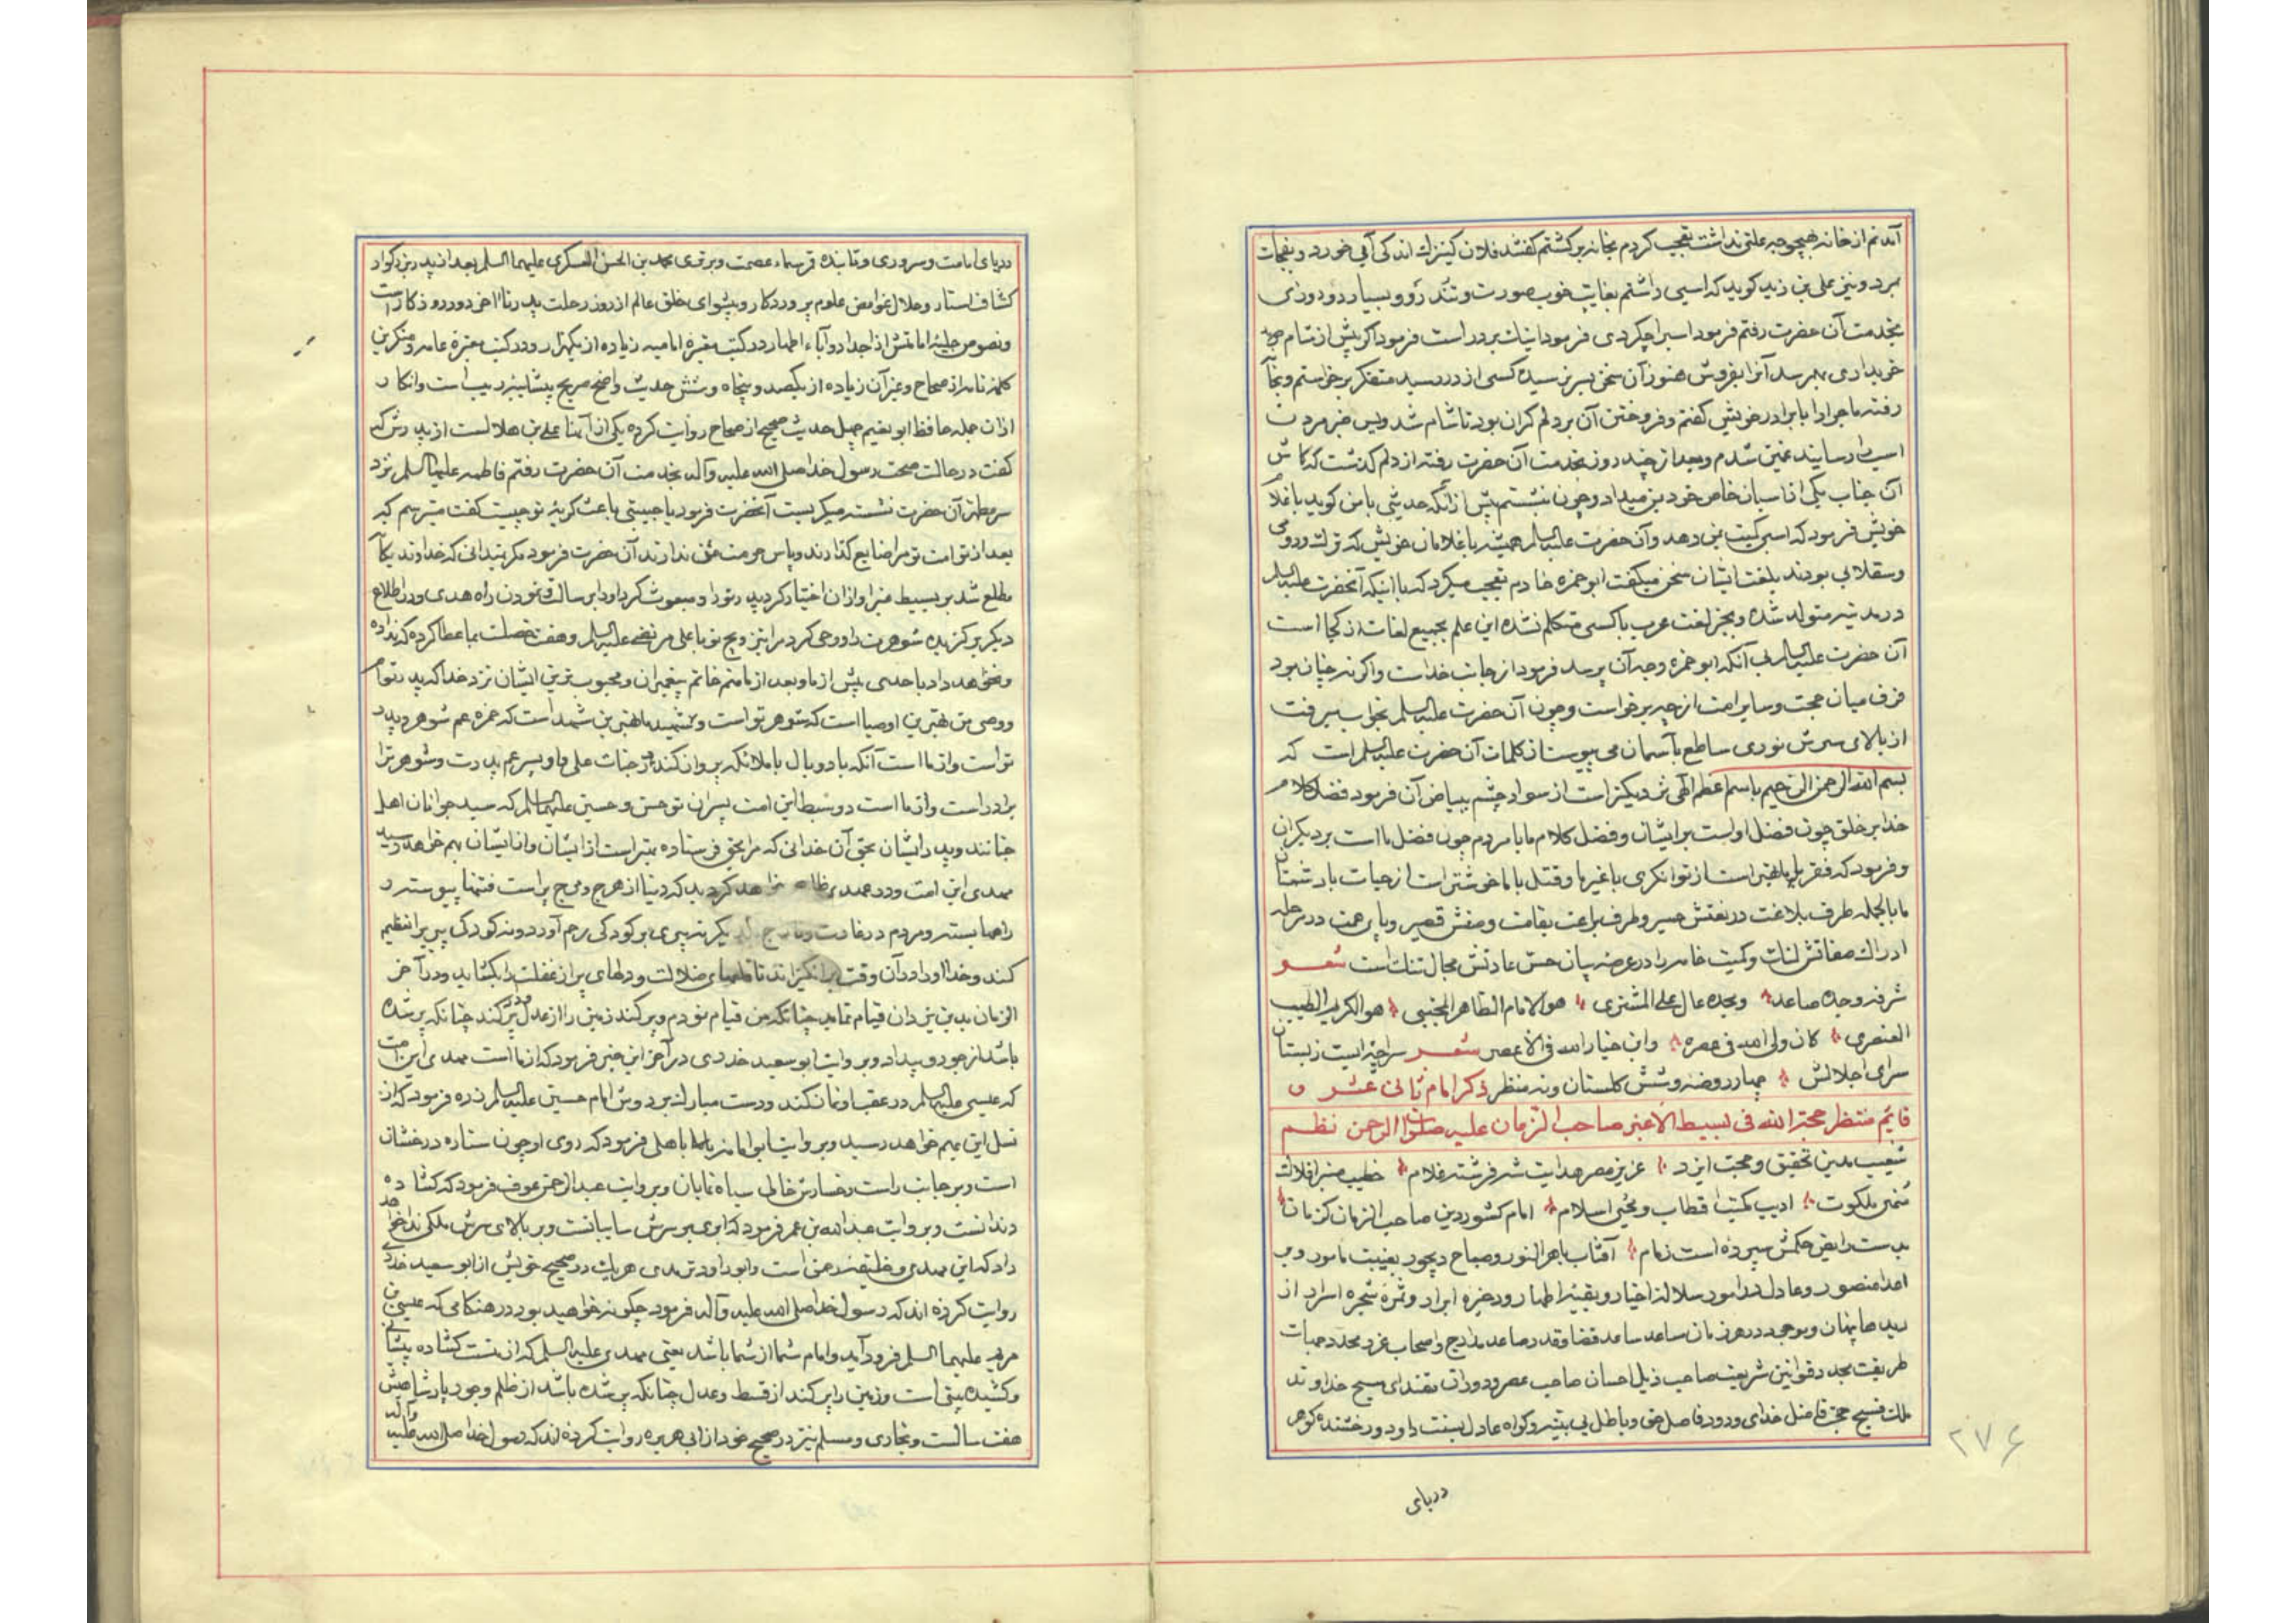 آمدنم از خانه بهیچوجه علتی نداشت تعجب کردم بخانه برکشتم کفتند فلان کنیزک اندکی آبی خورد و بفجات
بمرد و نیز علی بن زید کوید که اسبی داشتم بغایت خوب صورت و تند رو و بسیار دو روزی
بخدمت آن حضرت رفتم فرمود اسب را چکردی فرمود اکر پیش از شام
خریداری بهم رسد آنرا بفروش هنوز آن سخن بسر نرسیده کسی از در رسید متفکر برخواستم و بخانه
رفته ماجرا را با برادر خویش کفتم و فروختن آن بر دلم کران بود تا شام شد و پس خبر مردن
اسب را رسانیدند غمین شدم و بعد از چند روز بخدمت آن حضرت رفته از دلم کذشت که کاش
آن جناب یکی از اسبان خاص خود بمن میداد و چون نشستم پیش از آنکه حدیثی با من کوید با غلام
خویش فرمود که اسب کمیت بمن دهد و آن حضرت علیه السلم همیشه با غلامان خویش که ترک و رومی
و سقلابی بودند بلغت ایشان سخن میکفت ابوحمزه خادم تعجب میکرد که با اینکه آنحضرت علیه السلم
در مدینه متولد شده و بجز لغت عرب با کسی متکلم نشده این علم بجمیع لغات از کجا است
آن حضرت علیه السلم بی آنکه ابوحمزه وجه آن پرسد فرمود از جانب خداست و اکر نه چنان بود
فرق میان حجت و سایر امت از چه برخواست و چون آن حضرت علیه السلم بخواب میرفت
از بالای سرش نوری ساطع بآسمان می پیوست از کلمات آن حضرت علیه السلم است که
بسم الله الرحمن الرحیم باسم اعظم الهی نزدیکتر است از سواد چشم ببیاض آن فرمود فضل کلام
خدا بر خلق چون فضل اوست بر ایشان و فضل کلام ما با مردم چون فضل ما است بر دیکران
و فرمود که فقر با ما بهتر است از توانکری با غیر ما و قتل با ما خوشتر است از حیات با دشمنان
ما بالجمله طرف بلاغت در نعتش حسیر و طرف براعت بقامت وصفش قصیر و پای همت در مرحله
ادراک صفاتش لنک و کمیت خامه را در عرصه بیان حسن عادتش مجال تنک است شعر
شرفه وجده صاعد و مجده عال علی المشتری هو الامام الطاهر المجتبی هو الکریم الطیب
العنصری کان ولی الله فی عصره وابن خیار الله فی الاعصر شعر سراچه ایست ز بستان
سرای اجلالش چهار روضه و شش کلستان و نه منظر ذکر امام ثانی عشر و
قایم منتظر حجة الله فی بسیط الاغبر صاحب الزمان علیه صلوات الرحمن نظم
شعیب مدین تحقیق و حجت ایزد عزیز مصر هدایت شه فرشته غلام خطیب منبر افلاک
منهی ملکوت ادیب مکتب اقطاب و محیی اسلام امام کشور دین صاحب الزمان کز مان
بدست رایض حکمش سپرده است زمام آفتاب باهر النور و صباح دیجور بغیبت مامور و بر
اعدا منصور و عادل سلاله اخیار و بقیه اطهار و ذخیره ابرار و ثمره شجره اسرار از
دیدها پنهان و موجود در هر زمان ساعد ساعد قضا و قدر صاعد مدارج و اصحاب غرر مجدد
طریقت مجدد قوانین شریعت صاحب ذیل احسان صاحب عصر و دوران مقتدای مسیح خداوند
ملک فسیح حجت فاضل خدای ودود فاصل حق و باطل بی بینه و کواه عادل بسنت داود درخشنده کوهر
۲۷۶
دریای
دریای امامت و سروری و تابنده قمر سماء عصمت و برتری محمد بن الحسن العسکری علیهما السلم بعد از پدر بزرکوار
کشاف استار و حلال غوامض علوم پروردکار و پیشوای خلق عالم از روز رحلت پدر تا آخر دور روزکار است
و نصوص جلیه امامتش از اجداد و آباء اطهار در کتب معتبره امامیه زیاده از یکهزار و در کتب معتبره عامه و منکرین
از صحاح و غیر آن زیاده از یکصد و پنجاه و شش حدیث واضح صریح بیشایبه ریب است و انکار
از آن جمله حافظ ابو نعیم چهل حدیث صحیح از صحاح روایت کرده یکی از آنها علی بن هلالست از پدرش که
کفت در حالت صحت رسول خدا صلی الله علیه و آله بخدمت آن حضرت رفتم فاطمه علیها السلم نزد
سر مطهر آن حضرت نشسته میکریست آنحضرت فرمود یا حبیبتی باعث کریه تو چیست کفت میترسم که
بعد از تو امت تو مرا ضایع کذارند و پاس حرمت من ندارند آن حضرت فرمود مکر نمیدانی که خداوند یکبار
مطلع شد بر بسیط غبرا و از آن اختیار کرد پدر تو را و مبعوث کرد او را برسالت و نمودن راه هدی و در اطلاع
دیکر برکزیده شوهرت را و وحی کرد مرا بتزویج تو با علی مرتضی علیه السلم و هفت خصلت بما عطا کرده که نداده
و نخواهد داد باحدی پیش از ما و بعد از ما منم خاتم پیغمبران و محبوب ترین ایشان نزد خدا که پدر توام
و وصی من بهترین اوصیا است که شوهر تو است و شهید ما بهترین شهداست که حمزه عم شوهر و پدر
تو است و از ما است آنکه با دو بال با ملائکه پرواز کند در جنات علی و او پسر عم پدرت و شوهر ترا
برادر است و از ما است دو سبط این امت پسران تو حسن و حسین علیهما السلم که سید جوانان اهل
جنانند و پدر ایشان بحق آن خدائی که مرا بحق فرستاده بهتر است از ایشان و از ایشان بهم خواهد رسید
مهدی این امت و در عهدی ظاهر خواهد کردید که دنیا از هرج و مرج پر است فتنها پیوسته و
راهها بسته و مردم در غارت و تاراج یکدیکر نه پیری بر کودکی رحم آورد و نه کودکی پیر را تعظیم
کند و خدا او را در آن وقت برانکیزاند تا قلعهای ضلالت و دلهای پر از غفلت را بکشاید و در آخر
الزمان بدین یزدان قیام نماید چنانکه من قیام نمودم و پر کند زمین را از عدل چنانکه پر شده
باشد از جور و بیداد و بروایت ابو سعید خدری در آخر این خبر فرمود که از ما است مهدی این امت
که عیسی علیه السلم در عقب او نماز کند و دست مبارک بر دوش امام حسین علیه السلم زده فرمود که از
نسل این بهم خواهد رسید و بروایت ابو امامه باهلی فرمود که روی او چون ستاره درخشان
است و بر جانب راست رخسارش خالی سیاه نمایان و بروایت عبد الرحمن عوف فرمود که کشاده
دندانست و بروایت عبد الله بن عمر فرمود که ابری بر سرش سایبانست و بر بالای سرش ملکی ندا خواهد
داد که این مهدی و خلیفه حق است و ابو داود ترمدی هر یک در صحیح خویش از ابو سعید خدری
روایت کرده اند که رسول خدا صلی الله علیه و آله فرمود چکونه خواهید بود در هنکامی که عیسی بن
مریم علیهما السلم فرود آید و امام شما از شما باشد یعنی مهدی علیه السلم که از منست کشاده پیشانی
و کشیده بینی است و زمین را پر کند از قسط و عدل چنانکه پر شده باشد از ظلم و جور پادشاهیش
هفت سالست و بخاری و مسلم نیز در صحیح خود از ابی هریره روایت کرده اند که رسول خدا صلی الله علیه و آله